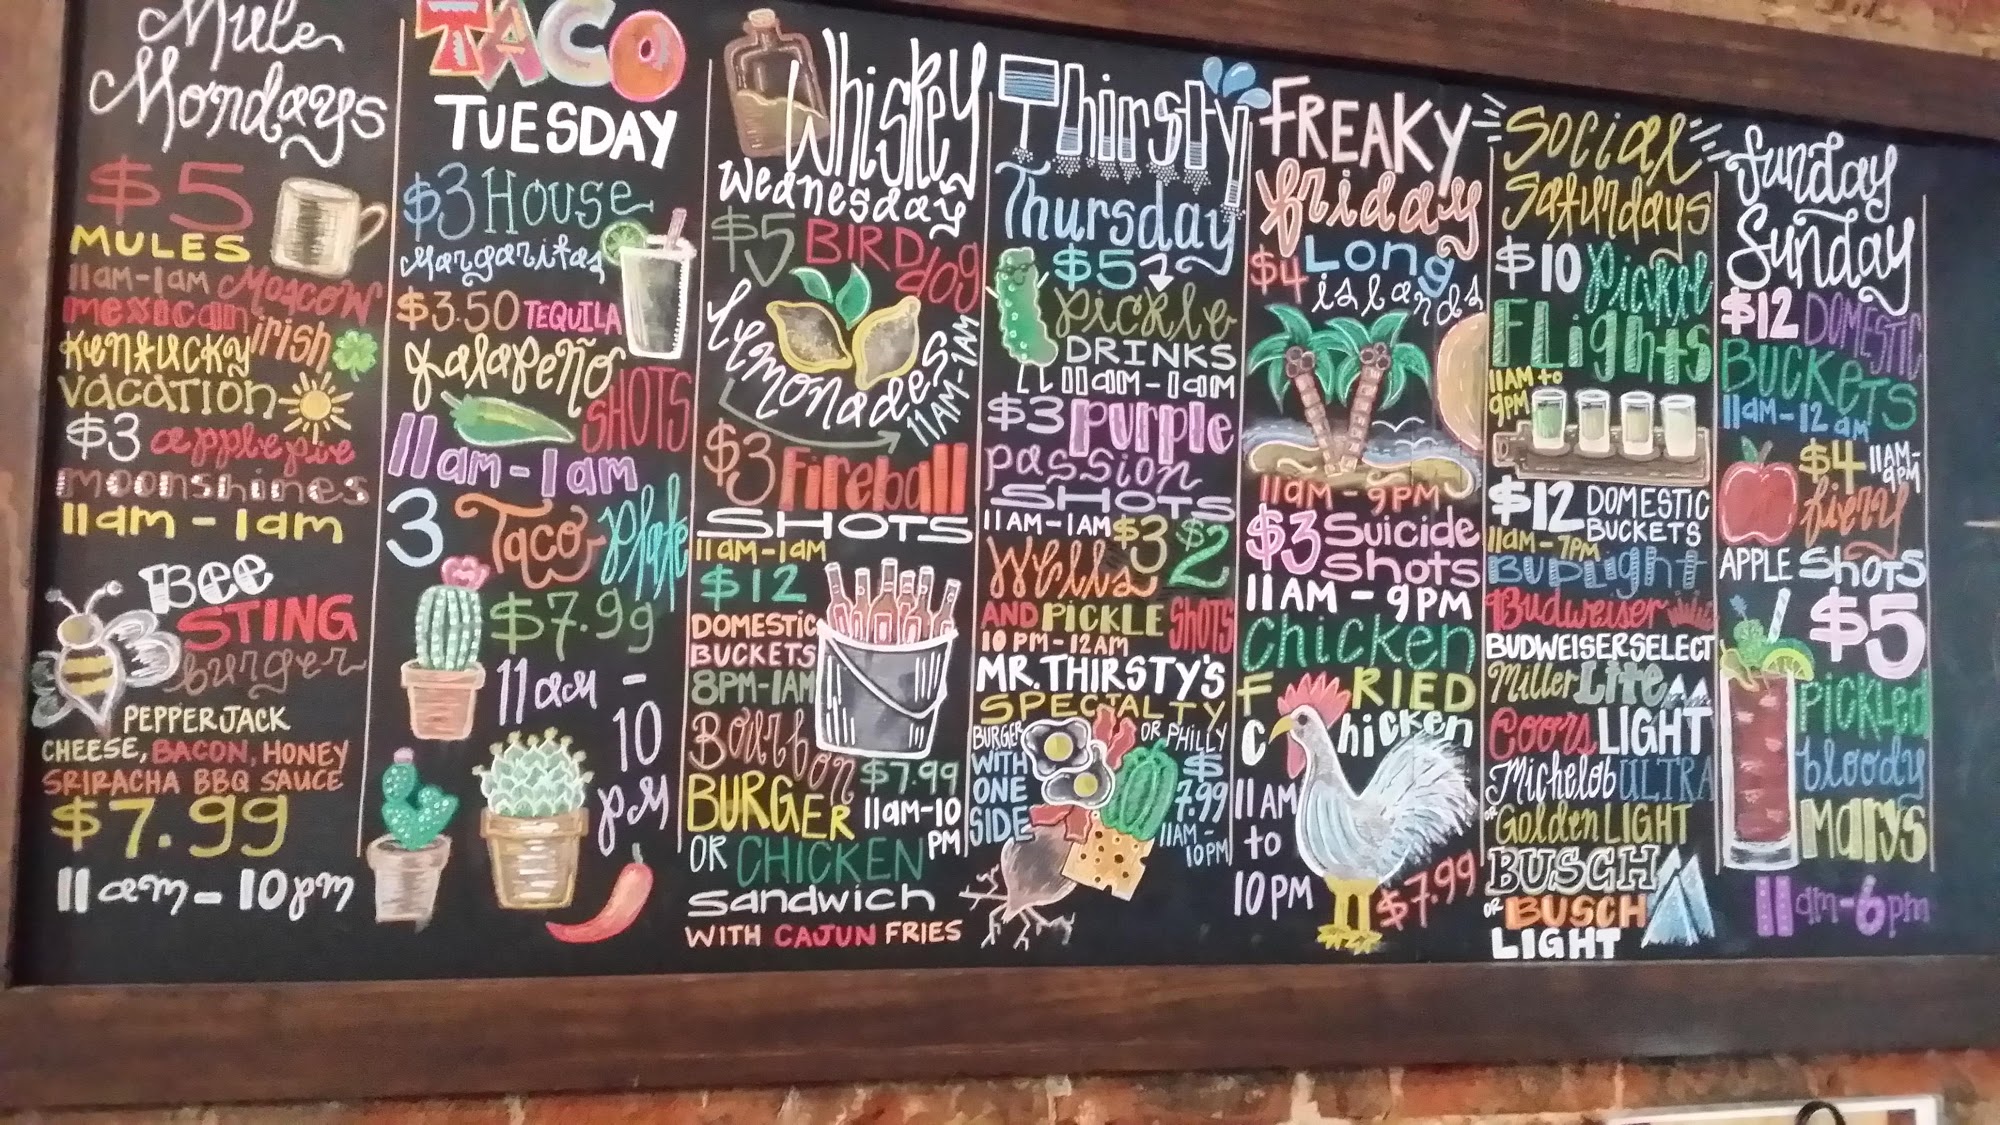 Mule
Mondays
$5
MULES
11am-1am Moscow
mexican irish
Kentucky
vacation
$3 apple pie
moonshines
11am - 1am
Bee
STING
burger
PEPPERJACK
CHEESE, BACON, HONEY
SRIRACHA BBQ SAUCE
$7.99
11am - 10pm
TACO
TUESDAY
$3 House
Margaritas
$3.50 TEQUILA
Jalapeño
SHOTS
11am - 1am
3 Taco Plate
$7.99
11am -
10
pm
Whiskey
Wednesday
$5 BIRD dog
Lemonades
11AM-1AM
$3 Fireball
SHOTS
11am-1am
$12
DOMESTIC
BUCKETS
8PM-1AM
Bourbon
BURGER
$7.99
11am-10
PM
OR CHICKEN
Sandwich
WITH CAJUN FRIES
Thirsty
Thursday
$5
Pickle
DRINKS
11am-1am
$3 Purple
passion
SHOTS
11AM-1AM $3 $2
Wells
AND PICKLE SHOTS
10 PM-12AM
MR. THIRSTY'S
SPECIALTY
BURGER OR PHILLY
WITH
ONE
SIDE
$
7.99
11AM-
10PM
FREAKY
friday
$4 Long
islands
11am - 9PM
$3 Suicide
Shots
11AM - 9PM
Chicken
FRIED
Chicken
11AM
to
10PM
$7.99
Social
Saturdays
$10 Pickle
FLights
11AM to
9PM
$12 DOMESTIC
BUCKETS
11am-7PM
BUDLight
Budweiser
BUDWEISER SELECT
Miller Lite
Coors LIGHT
Michelob ULTRA
Golden LIGHT
BUSCH
OR BUSCH
LIGHT
Sunday
Sunday
$12 DOMESTIC
BUCKETS
11am-12am
$4 11AM-
9PM
fiery
APPLE SHOTS
$5
PICKLED
bloody
MARYS
11am-6pm